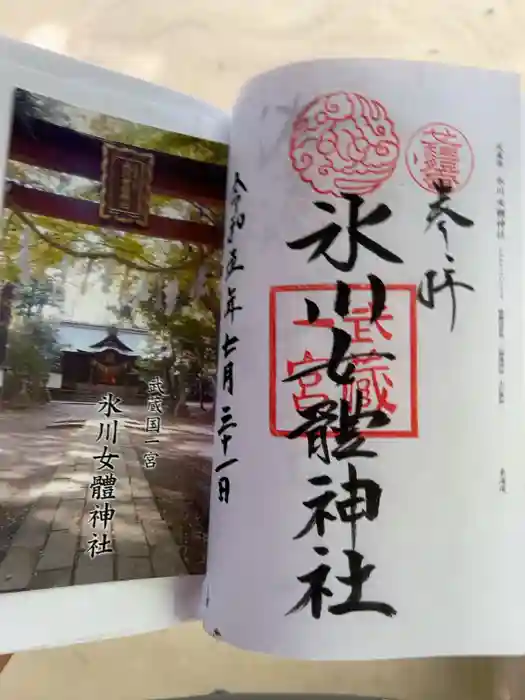 武蔵国一宮
氷川女體神社
奉拝
氷川女體神社
武蔵
一宮
令和五年七月三十一日
氷川女體神社